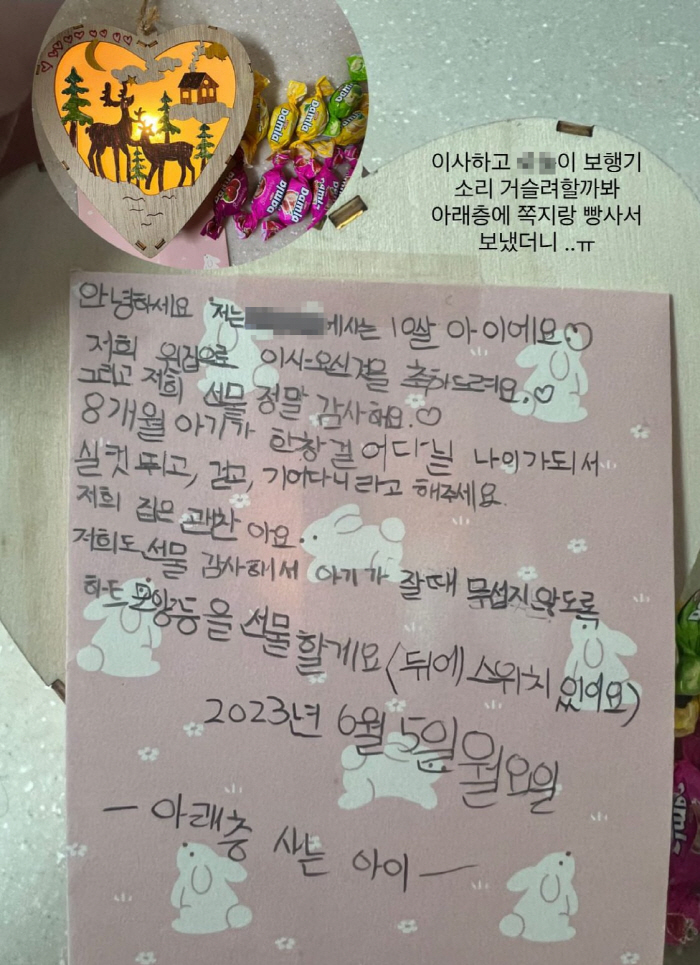 이사하고 이 보행기
소리 거슬려할까봐
아래층에 쪽지랑 빵사서
보냈더니 ..ㅠ
Damla
Damla
Damla
Damla
안녕하세요 저는 에사는 10살 아이에요♡
저희 윗집으로 이사오신걸을 축하드려요.♡
그리고 저희 선물 정말 감사해요.♡
8개월 아기가 한창 걸어다닐 나이가되서
실컷 뛰고, 걷고, 기어다니라고 해주세요.
저희 집은 괜찬아요.
저희도 선물 감사해서 아기가 잘때 무섭지 않도록
하트 모양등을 선물할게요(뒤에 스위치 있어요)
2023년 6월 5일 월요일
— 아래층 사는 아이 —